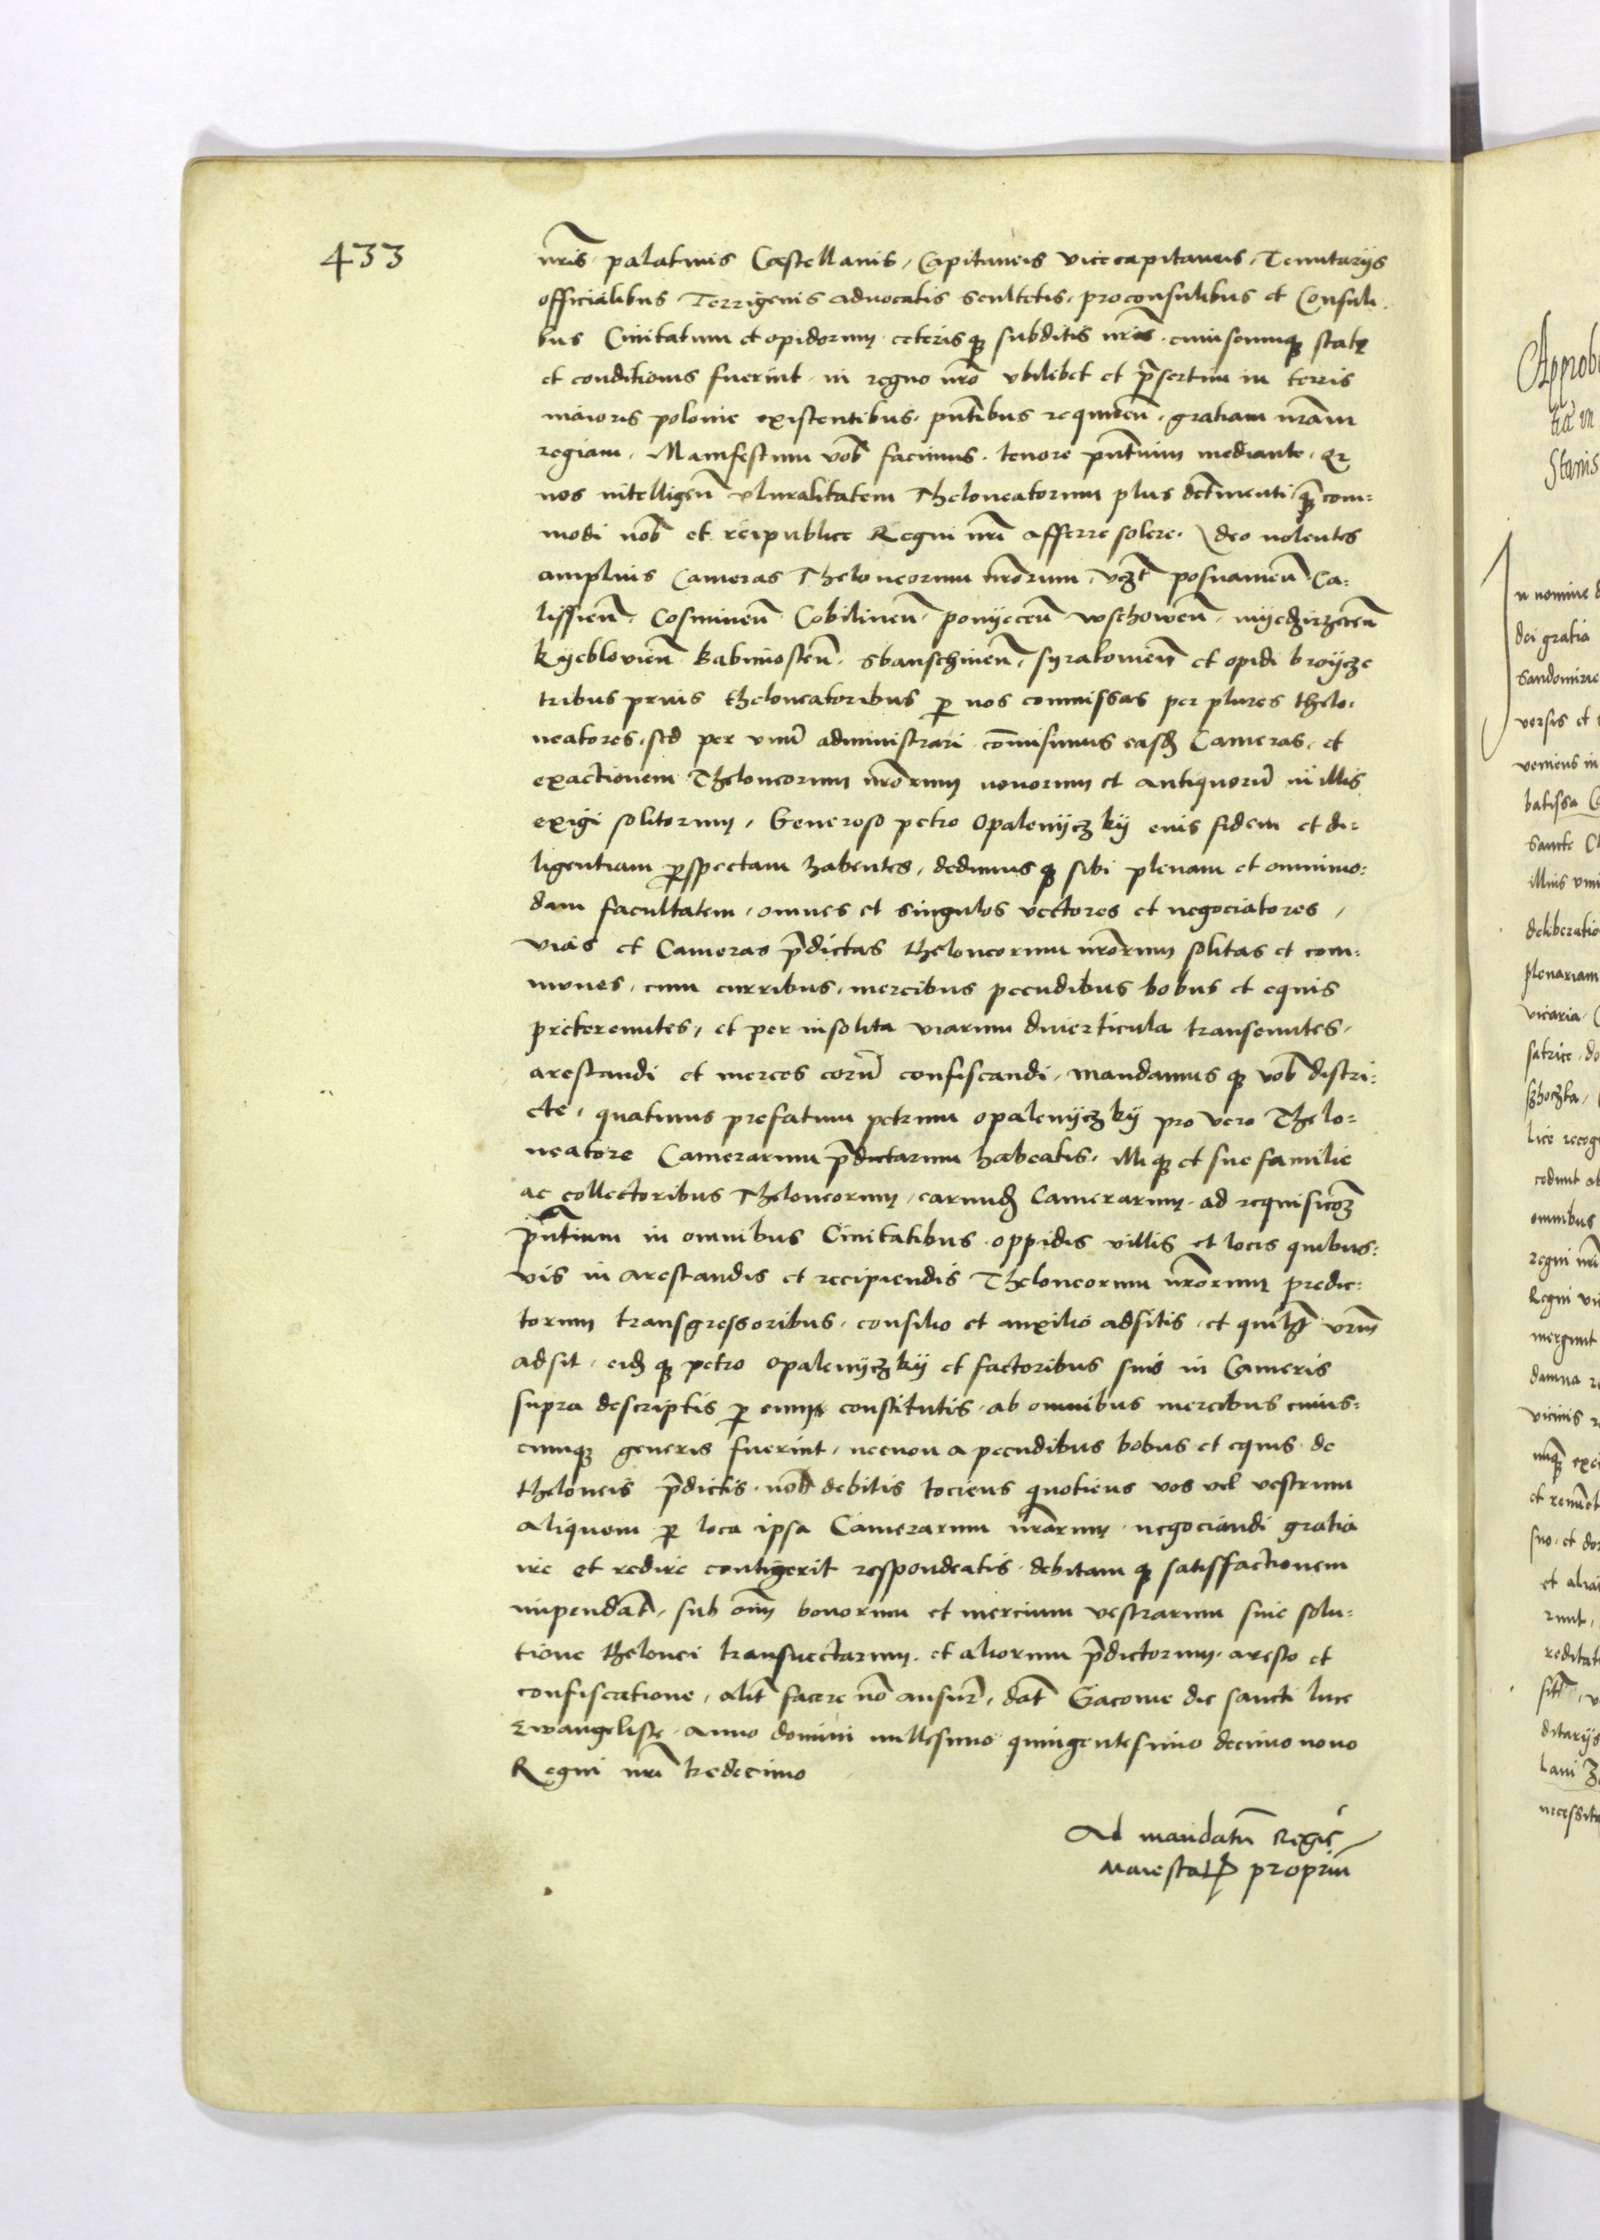 433
nr̃is palatinis Castellanis, Capitaneis vicecapitaneis, Tenutarijs
officialibus Terrigenis advocatis scultetis, proconsulibus et Consuli
bus Civitatum et opidorum ceterisq3 subditis nr̃is cuiuscumq3 status
et conditionis fuerint in regno nr̃o ubilibet et p̃sertim in terris
maioris polonie existentibus, pñtibus requireñ, gratiam nr̃am
regiam, Manifestum vob̃ facimus, tenore pñtium mediante, Qz
nos intelligeñ pluralitatem Theloneatorum plus detr̃imenti q̃3 com=
modi nob̃ et reipublice Regni nr̃i afferre solere, Ideo nolentes
amplius Cameras Theloneorum nr̃orum, vcz̃t posnanieñ Ca=
lissieñ, Cosmineñ Cobilineñ ponijeceñ wschoweñ, mijedzirzeceñ
kijeblovieñ babimosteñ, sbanschineñ, syrakovieñ et opidi broijcze
tribus prius theloneatoribus p nos commissas per plures thelo=
neatores, sed per unu͂ administrari com̃isimus easd̃ Cameras, et
exactionem Theloneorum nr̃orum novorum et antiquoru͂ in illis
exigi solitorum, Generoso petro Opalenijczkij eius fidem et di=
ligentiam p̃spectam habentes, dedimusq3 sibi plenam et omnimo=
dam facultatem, omnes et singulos vectores et negociatores,
vias et Cameras p̃dictas theloneorum nr̃orum solitas et com=
munes, cum curribus, mercibus pecudibus bobus et equis
pretereuntes, et per insolita viarum diverticula transeuntes,
arestandi et merces eoru͂ confiscandi, mandamusq3 vob̃ distri=
cte, quatinus prefatum petrum opalenijczkij pro vero Thelo=
neatore Camerarum p̃dictarum habeatis, illiq3 et sue familie
ac collectoribus Theloneorum, earund̃ Camerarum, ad requisico͂3
pñtium in omnibus Civitatibus oppidis villis et locis quibus=
vis in arestandis et recipiendis Theloneorum nr̃orum predic=
torum transgressoribus, consilio et auxilio adsitis, et quilz̃t vr̃m
adsit, eid̃q3 petro opalenijczkij et factoribus suis in Cameris
supra descriptis p eum constitutis, ab omnibus mercibus cuius=
cumq3 generis fuerint, necnon a pecudibus bobus et equis de
theloneis p̃dictis, nob̃ debitis tociens quotiens vos vel vestrum
aliquem p loca ipsa Camerarum nr̃arum negociandi gratia
ire et redire contigerit respondeatis, debitamq3 satisfactionem
impendat̃, sub om̃i bonorum et mercium vestrarum sine solu=
tione thelonei transvectarum et aliorum p̃dictorum, aresto et
confiscatione, alit̃ facere no͂ ausur̃, dat̃ Gracovie die sancti luce
Ewangeliste, Anno domini millesimo quingentesimo decimo nono
Regni nr̃i tredecimo
Ad mandatu͂ Regie
Maiestatis propriu͂
Approb
Stanis
In nomine d
dei gratia
Sandomirie
versis et
veniens in
batissa
Sancte Cl
illius
deliberatio
plenariam
vicaria
satrice, do
lice recog
cedunt ab
omnibus
regni nr̃i
Regni
mergunt
damna re
vicinis
et
suo, et do
et alia
runt,
reditat
ditarijs
lani
necessita